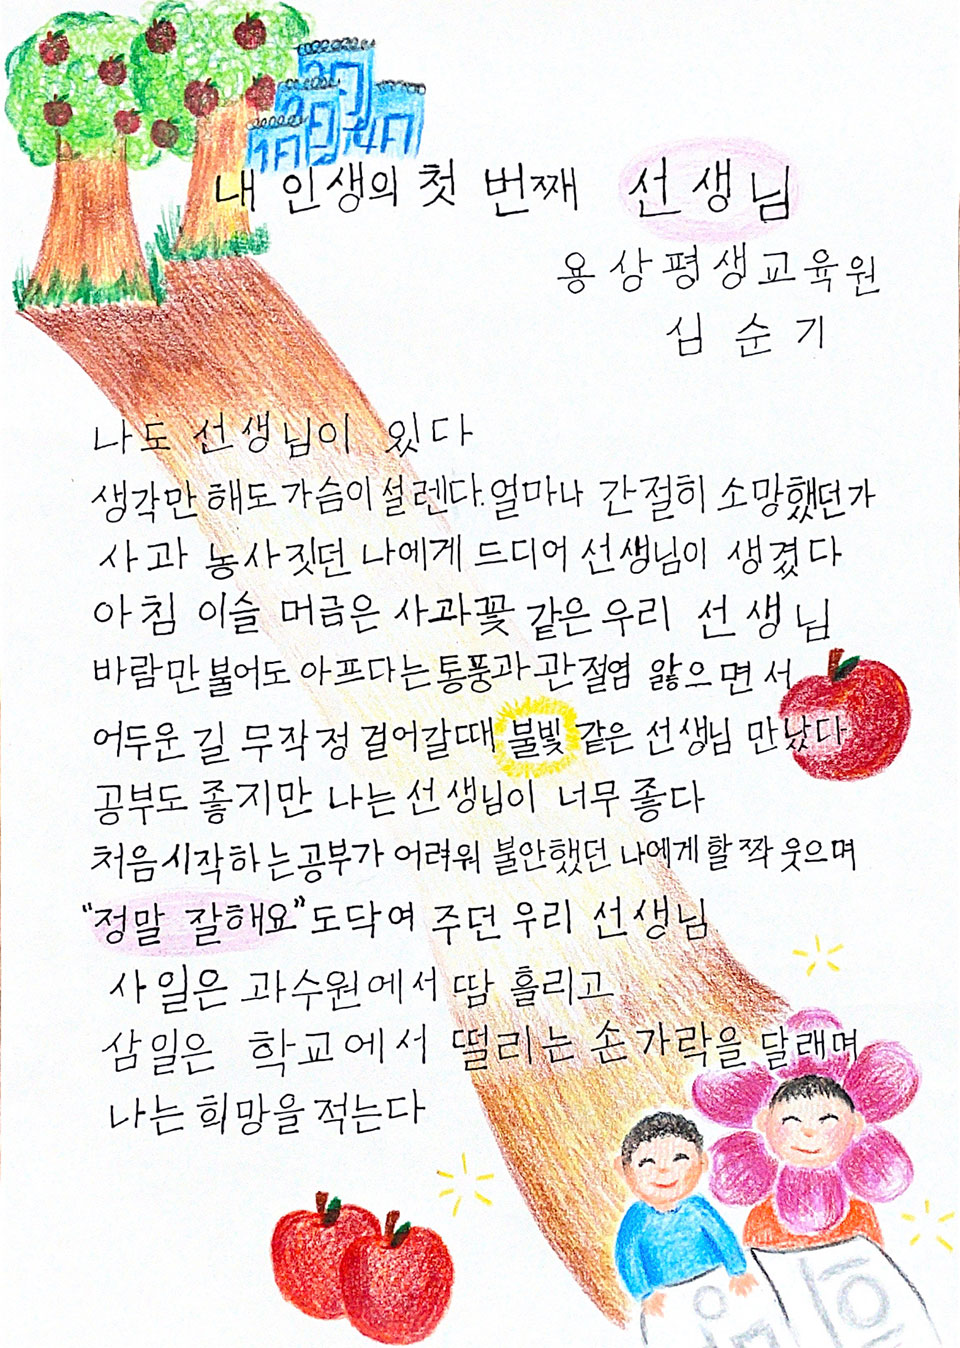 내 인생의 첫 번째 선생님
용상평생교육원
심순기
나도 선생님이 있다
생각만 해도 가슴이 설렌다. 얼마나 간절히 소망했던가
사과 농사짓던 나에게 드디어 선생님이 생겼다
아침 이슬 머금은 사과꽃 같은 우리 선생님
바람만 불어도 아프다는 통풍과 관절염 앓으면서
어두운 길 무작정 걸어갈때 불빛 같은 선생님 만났다
공부도 좋지만 나는 선생님이 너무 좋다
처음 시작하는 공부가 어려워 불안했던 나에게 할짝 웃으며
"정말 잘해요" 도닥여 주던 우리 선생님
사일은 과수원에서 땀 흘리고
삼일은 학교에서 떨리는 손가락을 달래며
나는 희망을 적는다